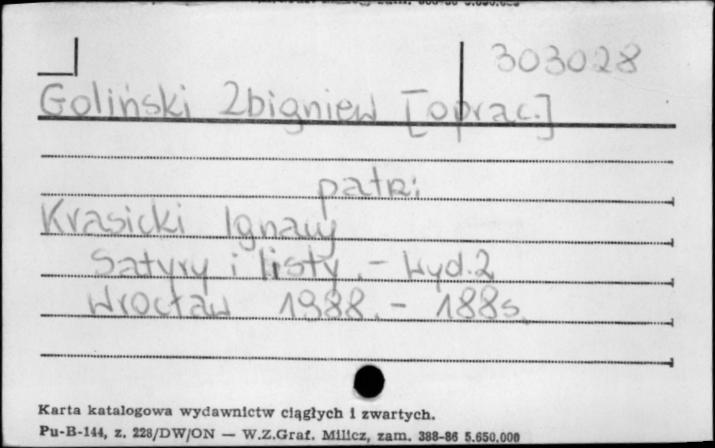 303028
Goliński Zbigniew [oprac.]
patrz:
Krasicki Ignacy
Satyry i listy. - Wyd. 2
Wrocław 1988. - 188 s.
Karta katalogowa wydawnictw ciągłych i zwartych.
Pu-B-144, z. 228/DW/ON — W.Z.Graf. Milicz, zam. 388-86 5.650.000